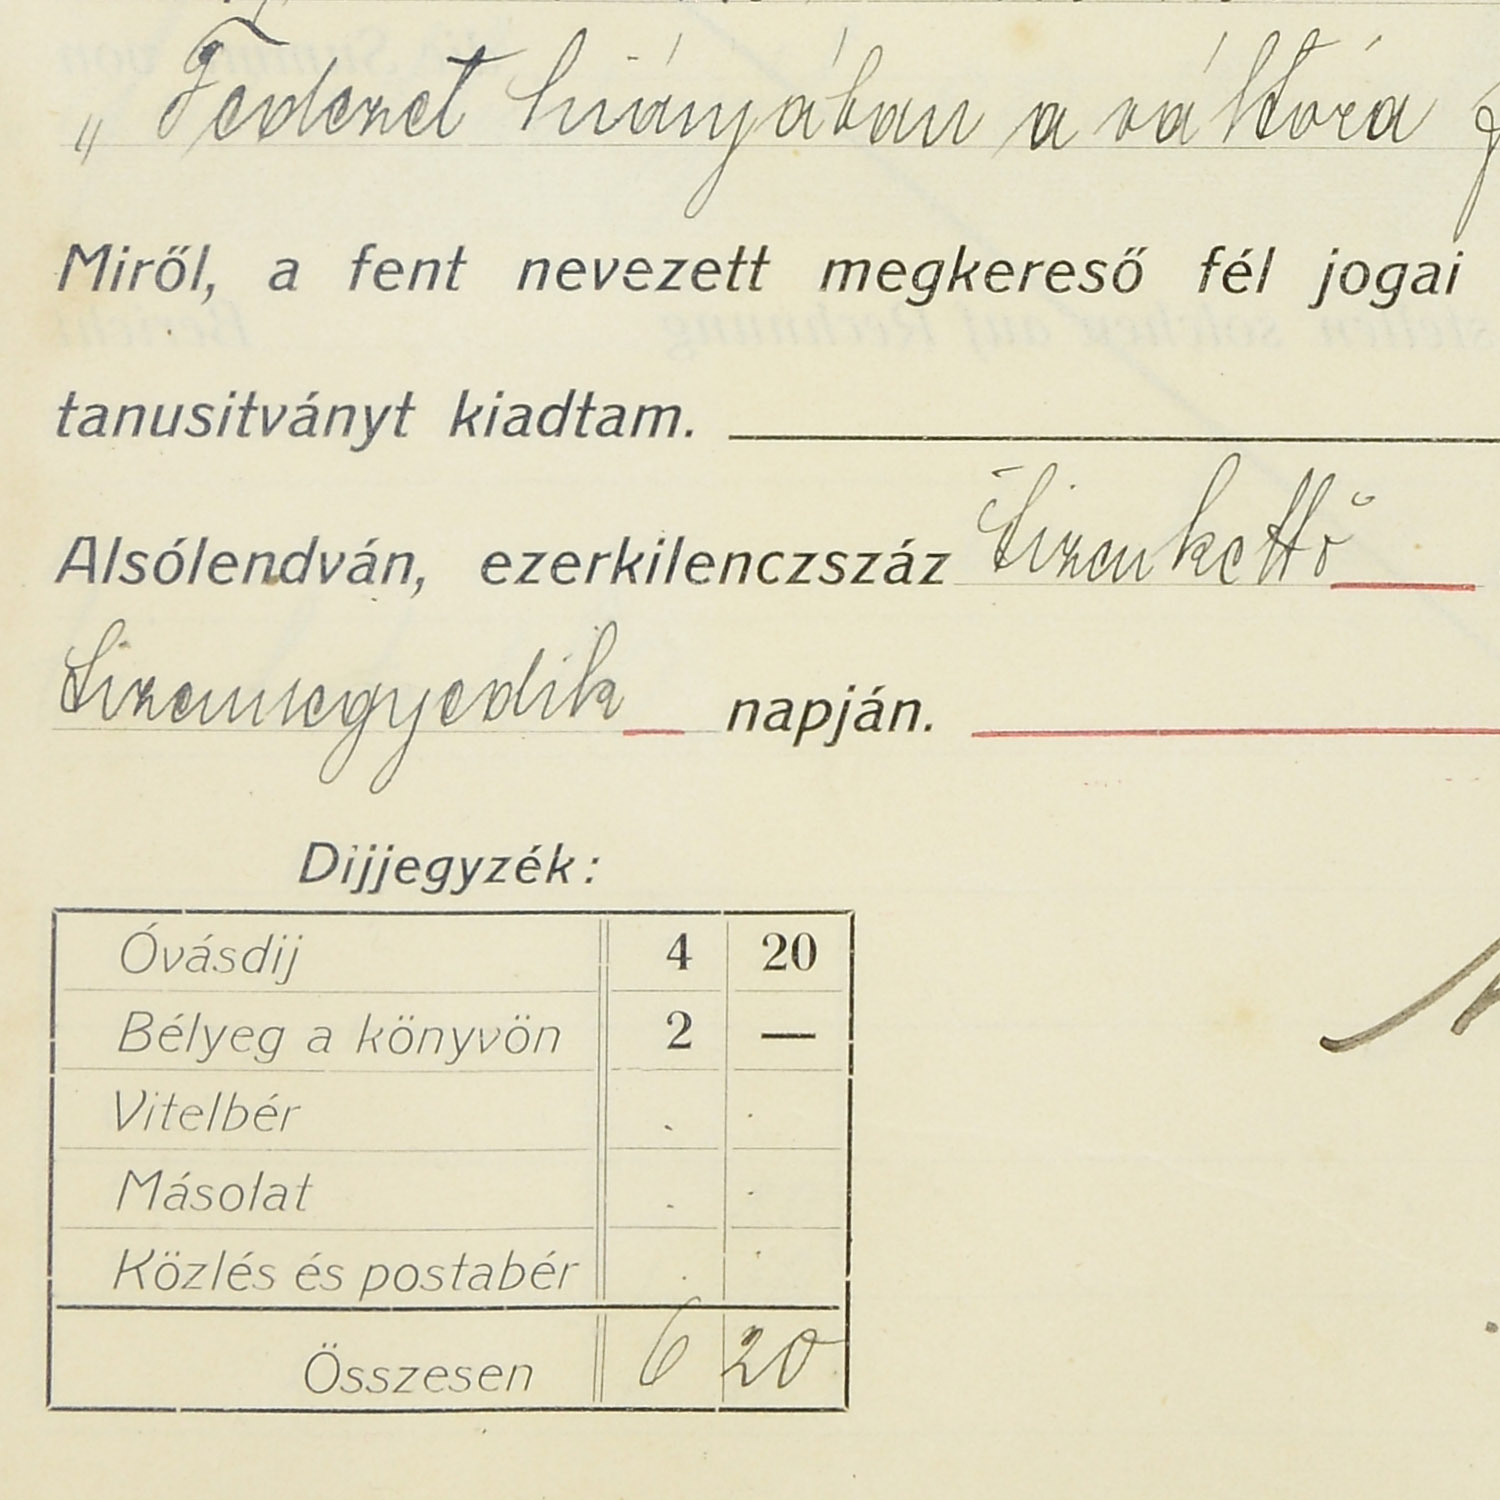 „ Fedezet hiányában a váltóra
Miről, a fent nevezett megkereső fél jogai
tanusitványt kiadtam.
Alsólendván, ezerkilenczszáz tizenkettő
tizennegyedik napján.
Dijjegyzék:
Óvásdij 4 20
Bélyeg a könyvön 2 —
Vitelbér
Másolat
Közlés és postabér
Összesen 6 20